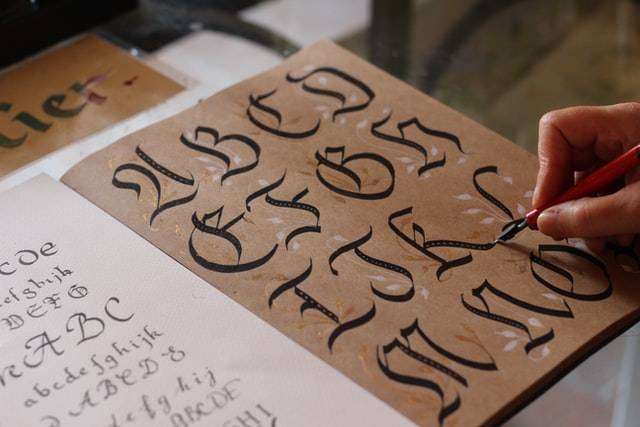 lier
A B C D
E F G H
I J K L
M N O
cde
efghijk
DEFG
ABC
abcdefghijk
ABCDE
efghij
ABCDE